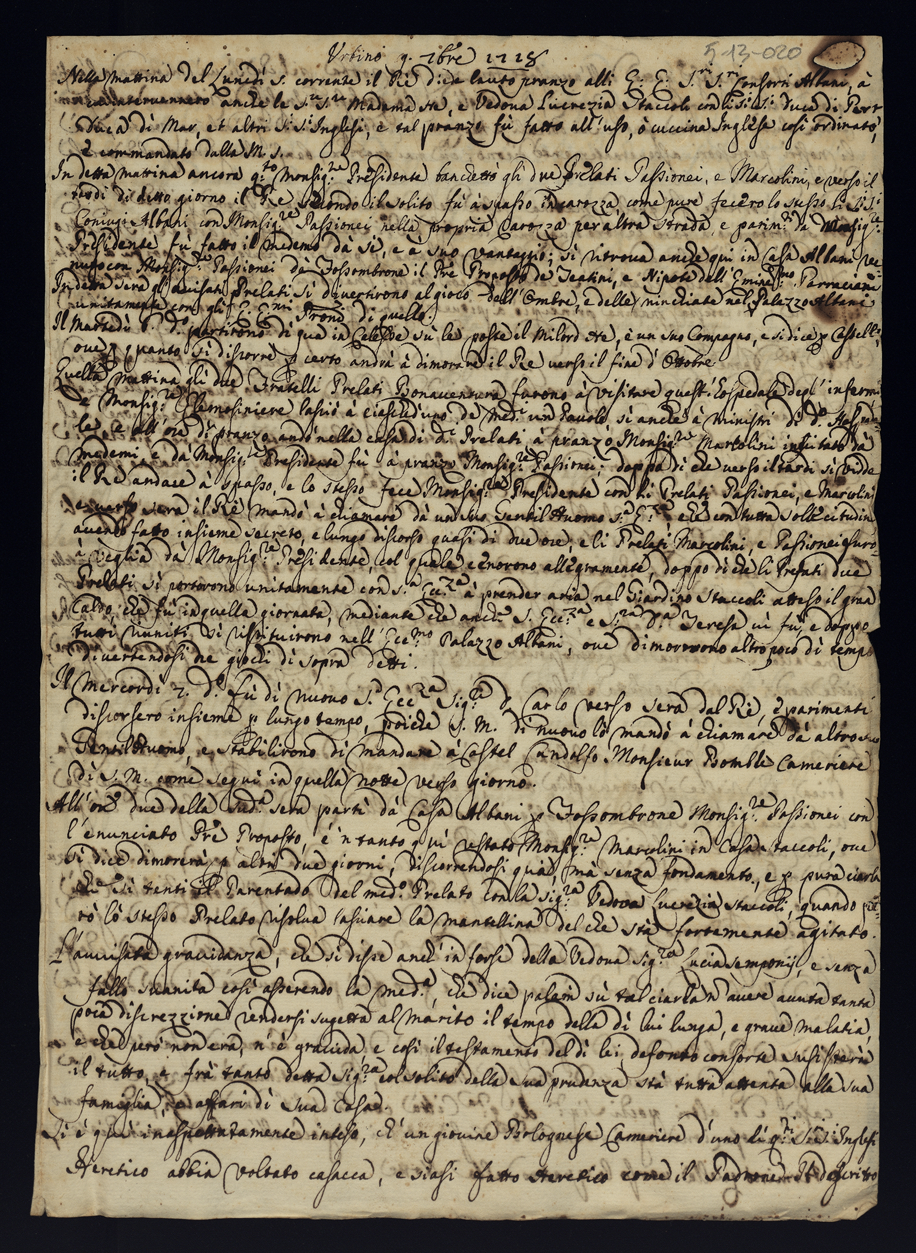 Urbino 9. 7bre 1718
5-13-020
Nella mattina del Lunedi 5. corrente il Rè diede lauto pranzo alli E. E. Sri. Sri. Consorti Albani, à
cui intervennero anche le Sre. Sre. Madama He, e Vedova Lucrezia Staccoli con li Si. Si. Duca di Pert
Duca di Mar, et altri Si. Si. Inglesi, e tal pranzo fù fatto all'uso, ò cuccina Inglese così ordinato,
e commandato dalla M. S.
In detta mattina ancora Monsig.re Presidente banchettò gli due Prelati Passionei, e Marcolini, e verso il
tardi di ditto giorno il Rè secondo il solito fù à spasso in carozza come pure fecero lo stesso li
Coniugi Albani con Monsig.re Passionei nella propria Carozza per altra strada, e parim.te da Monsig.re
Presidente fù fatto il medemo da sì, e à suo vantaggio; si ritrova anche qui in Casa Albani ve
nuto con Monsig.re Passionei da Fossombrone il Pre Proposto de Teatini, e Nipote dell'Emin.mo Parracciani
In detta sera gli avvisati Prelati si divertirono al gioco dell'Ombre, e delle minchiate nel Palazzo Albani
unitamente con gli E. Eccmi Proni di quello.
Il Martedì 6 do. partirono di qua in Calesse sù le poste il Milord He, e un suo Compagno, e si dice p Castello
ove p quanto si discorre p certo andrà à dimorare il Rè verso il fine d'Ottobre.
Quella mattina gli due Fratelli Prelati Bonaventura furono à visitare quest'Hospedale degl'infermi
e Monsig.re Elemosiniere lasciò à ciascheduno de med.i un Pavolo sì anche à ministri di do. Hospita
le, e all'ora di pranzo andò nella casa di di. Prelati à pranzo Monsig.re Marcolini invitato dà
medemi, e da Monsig.re Presidente fù à pranzo Monsig.re Passionei; doppo di che verso il tardi si vidde
il Rè andare à spasso, e lo stesso fece Monsig.re Presidente con li Prelati Passionei, e Marcolini
e verso sera il Rè mandò à chiamare dà un suo Gentil'huomo S. E., e che con tutta sollecitudine
avendo fatto insieme secreto, e lungo discorso quasi di due ore, e li Prelati Marcolini, e Passionei furono
à veglia dà Monsig.re Presidente, col quale cenorono allegramente, doppo di che li Presenti due
Prelati si portorono unitamente con S. Ecc.za à prender aria nel Giardino Staccoli atteso il gran
Caldo, che fù in quella giornata, mediante che anche S. Ecc.za e S.ra D.a Teresa vi fù, e doppo
tutti riuniti si restituirono nell'Ecc.mo Palazzo Albani, ove dimororono altro poco di tempo
divertendosi ne giochi di sopra detti.
Il Mercordi 7. do. fù di nuovo S. Ecc.za Sig.re D. Carlo verso sera dal Rè, e parimenti
discorsero insieme p lungo tempo, poiche S. M. di nuovo lo mandò à chiamare dà altro suo
Gentilhuomo, e stabilirono di mandare à Castel Gandolfo Monsieur Botelle Cameriere
di S. M. come seguì in quella notte verso giorno.
All'ore due della sud.a sera partì dà Casa Albani p Fossombrone Monsig.re Passionei con
l'enunciato Pre Proposto, e n tanto quì restato Monsig.re Marcolini in Casa Staccoli, ove
si dice dimorerà p altri due giorni, discorrendosi quà, mà senza fondamento, e p pura ciarla
che si tenti il Parentado del med.o Prelato con la Sig.ra Vedova Lucrezia Staccoli, quando pe-
rò lo stesso Prelato risolva lasciare la mantellina del che stà fortemente agitato.
L'avvisata gravidanza, che si disse anch'in forsi della Vedova Sig.ra Lucia Semproni, e senza
fallo svanita così asserendo la med.a, che dice palam sù tal ciarla n avere avuta tanta
poca discrezzione rendersi sugetta al marito il tempo della di lui lunga, e grave malatia
e che però non era, n'è gravida, e così il testamento del di lei defonto consorte sussisterà
il tutto, e frà tanto detta Sig.ra col solito della sua prudenza stà tutta attenta alla sua
fameglia, e affari di sua Casa.
Si è quà inaspettatamente inteso, ch'un giovine Bolognese Cameriere d'uno di qti. Si. Si. Inglesi
Heretico abbia voltato casacca, e siasi fatto Heretico come il Padrone descritto